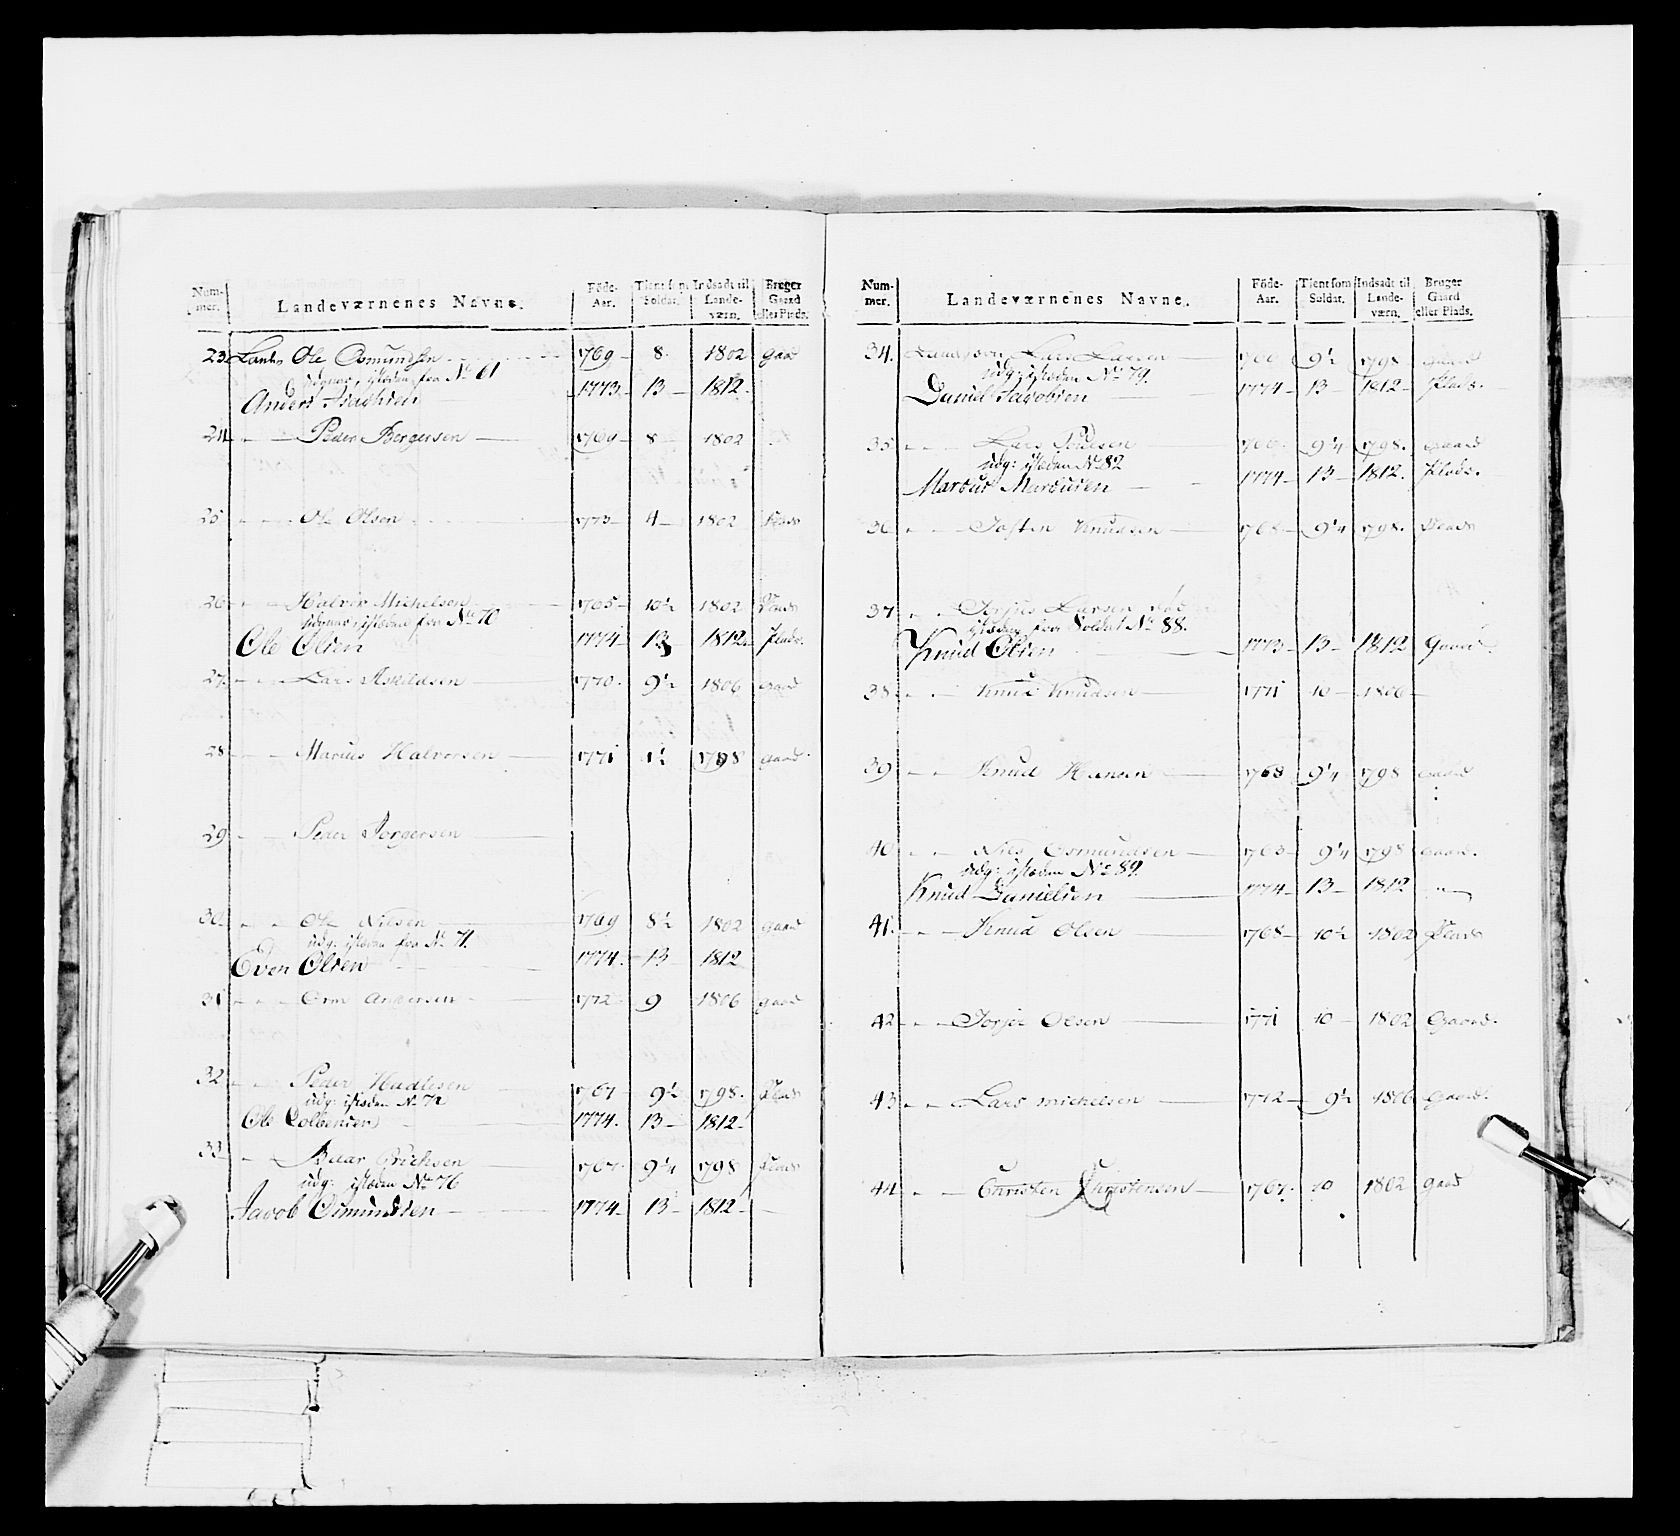 Num-mer. Landeværnenes Navne. Föde-Aar. Tient som Soldat. Indsadt til Lande-værn. Bruger Gaard eller Plads.
23 Ole Osmundsen 1769 8 1802 Gaad
istæden fra No 61
Anders 1773 13 1812
24 Peder Borgersen 1769 8 1802
25 Ole Olsen 1773 4 1802 Plads
26 Halvor Michelsen 1765 10½ 1802 Plads
istæden fra No 70
Ole Olsen 1774 13 1812 Plads.
27 Lars Askildsen 1770 9½ 1806 Gaad
28 Marcus Halvorsen 1771 1½ 1798 Gaard
29 Peder Jorgersen
30 Ole Nilsen 1769 8½ 1802 Gaard
udg: istæden fra No 71.
Even Olsen 1774. 13 1812
31 Orm Andersen 1772 9 1806 Gaard
32 Peder 1767 9½ 1798. Plads
udg: istæden No 72
Ole Colbensen 1774. 13 1812
33 Erichsen 1767 9¼ 1798 Plads
udg: istæden No 76
Jacob Osmundsen 1774 13 1812
Num-mer. Landeværnenes Navne. Föde-Aar. Tient som Soldat. Indsadt til Lande-værn. Bruger Gaard eller Plads.
34. Lars Larsen 1766 9½ 1798 Gaard
udg: istæden No 79.
Daniel Jacobsen 1774 13 1812 Plads.
35 Lars 1766 9¼ 1798. Gaard
udg: istæden No 82
Marcus Marcusen 1774 13 1812. Plads.
36 Knudsen 1768 9¼ 1798. Plads
37 Larsen
istæden for Soldat No 88.
Knud Olsen 1773 13 1812 Gaard.
38 Knud Knudsen 1771 10 1806
39 Knud Hansen 1768 9¼ 1798 Gaard
40 Niels Osmundsen 1763 9¼ 1798 Gaard.
udg: istæden No 89.
Knud Danielsen 1774 13 1812 "
41. Knud Olsen 1768 10½ 1802 Plads
42 Olsen 1771 10 1802 Gaard.
43 Lars Michelsen 1772 9½ 1806 Gaard.
44 Christen Christensen 1767. 10 1802 Gaad